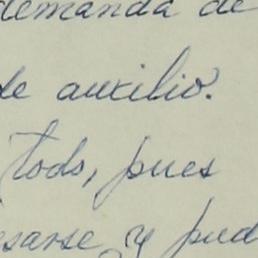 demanda de
de auxilio.
todo, pues
sarse y pud